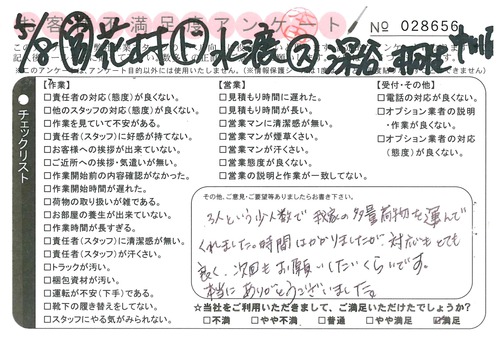 お客様不満足度アンケート
5/8 営 花村 ト 水渡 ス 深谷
No 028656
※このアンケートは、アンケート目的以外には使用いたしません。
チェックリスト
【作業】
□責任者の対応(態度)が良くない。
□他のスタッフの対応(態度)が良くない。
□作業を見ていて不安がある。
□責任者(スタッフ)に好感が持てない。
□お客様への挨拶が出来ていない。
□ご近所への挨拶・気遣いが無い。
□作業開始前の内容確認がなかった。
□作業開始時間が遅れた。
□荷物の取り扱いが雑である。
□お部屋の養生が出来ていない。
□作業時間が長すぎる。
□責任者(スタッフ)に清潔感が無い。
□責任者(スタッフ)が汗くさい。
□トラックが汚い。
□梱包資材が汚い。
□運転が不安(下手)である。
□靴下の履き替えをしてない。
□スタッフにやる気がみられない。
【営業】
□見積もり時間に遅れた。
□見積もり時間が長い。
□営業マンに清潔感が無い。
□営業マンが煙草くさい。
□営業マンが汗くさい。
□営業態度が良くない。
□営業の説明と作業が一致してない。
【受付・その他】
□電話の対応が良くない。
□オプション業者の説明
・作業が良くない。
□オプション業者の対応
(態度)が良くない。
その他、ご意見・ご要望等ありましたらお書き下さい。
3人という少人数で我家の多量荷物を運んで
くれました。時間はかかりましたが対応もとても
良く、次回もお願いしたいくらいです。
本当にありがとうございました。
☆当社をご利用いただきまして、ご満足いただけたでしょうか?
□不満 □やや不満 □普通 □やや満足 ☑満足